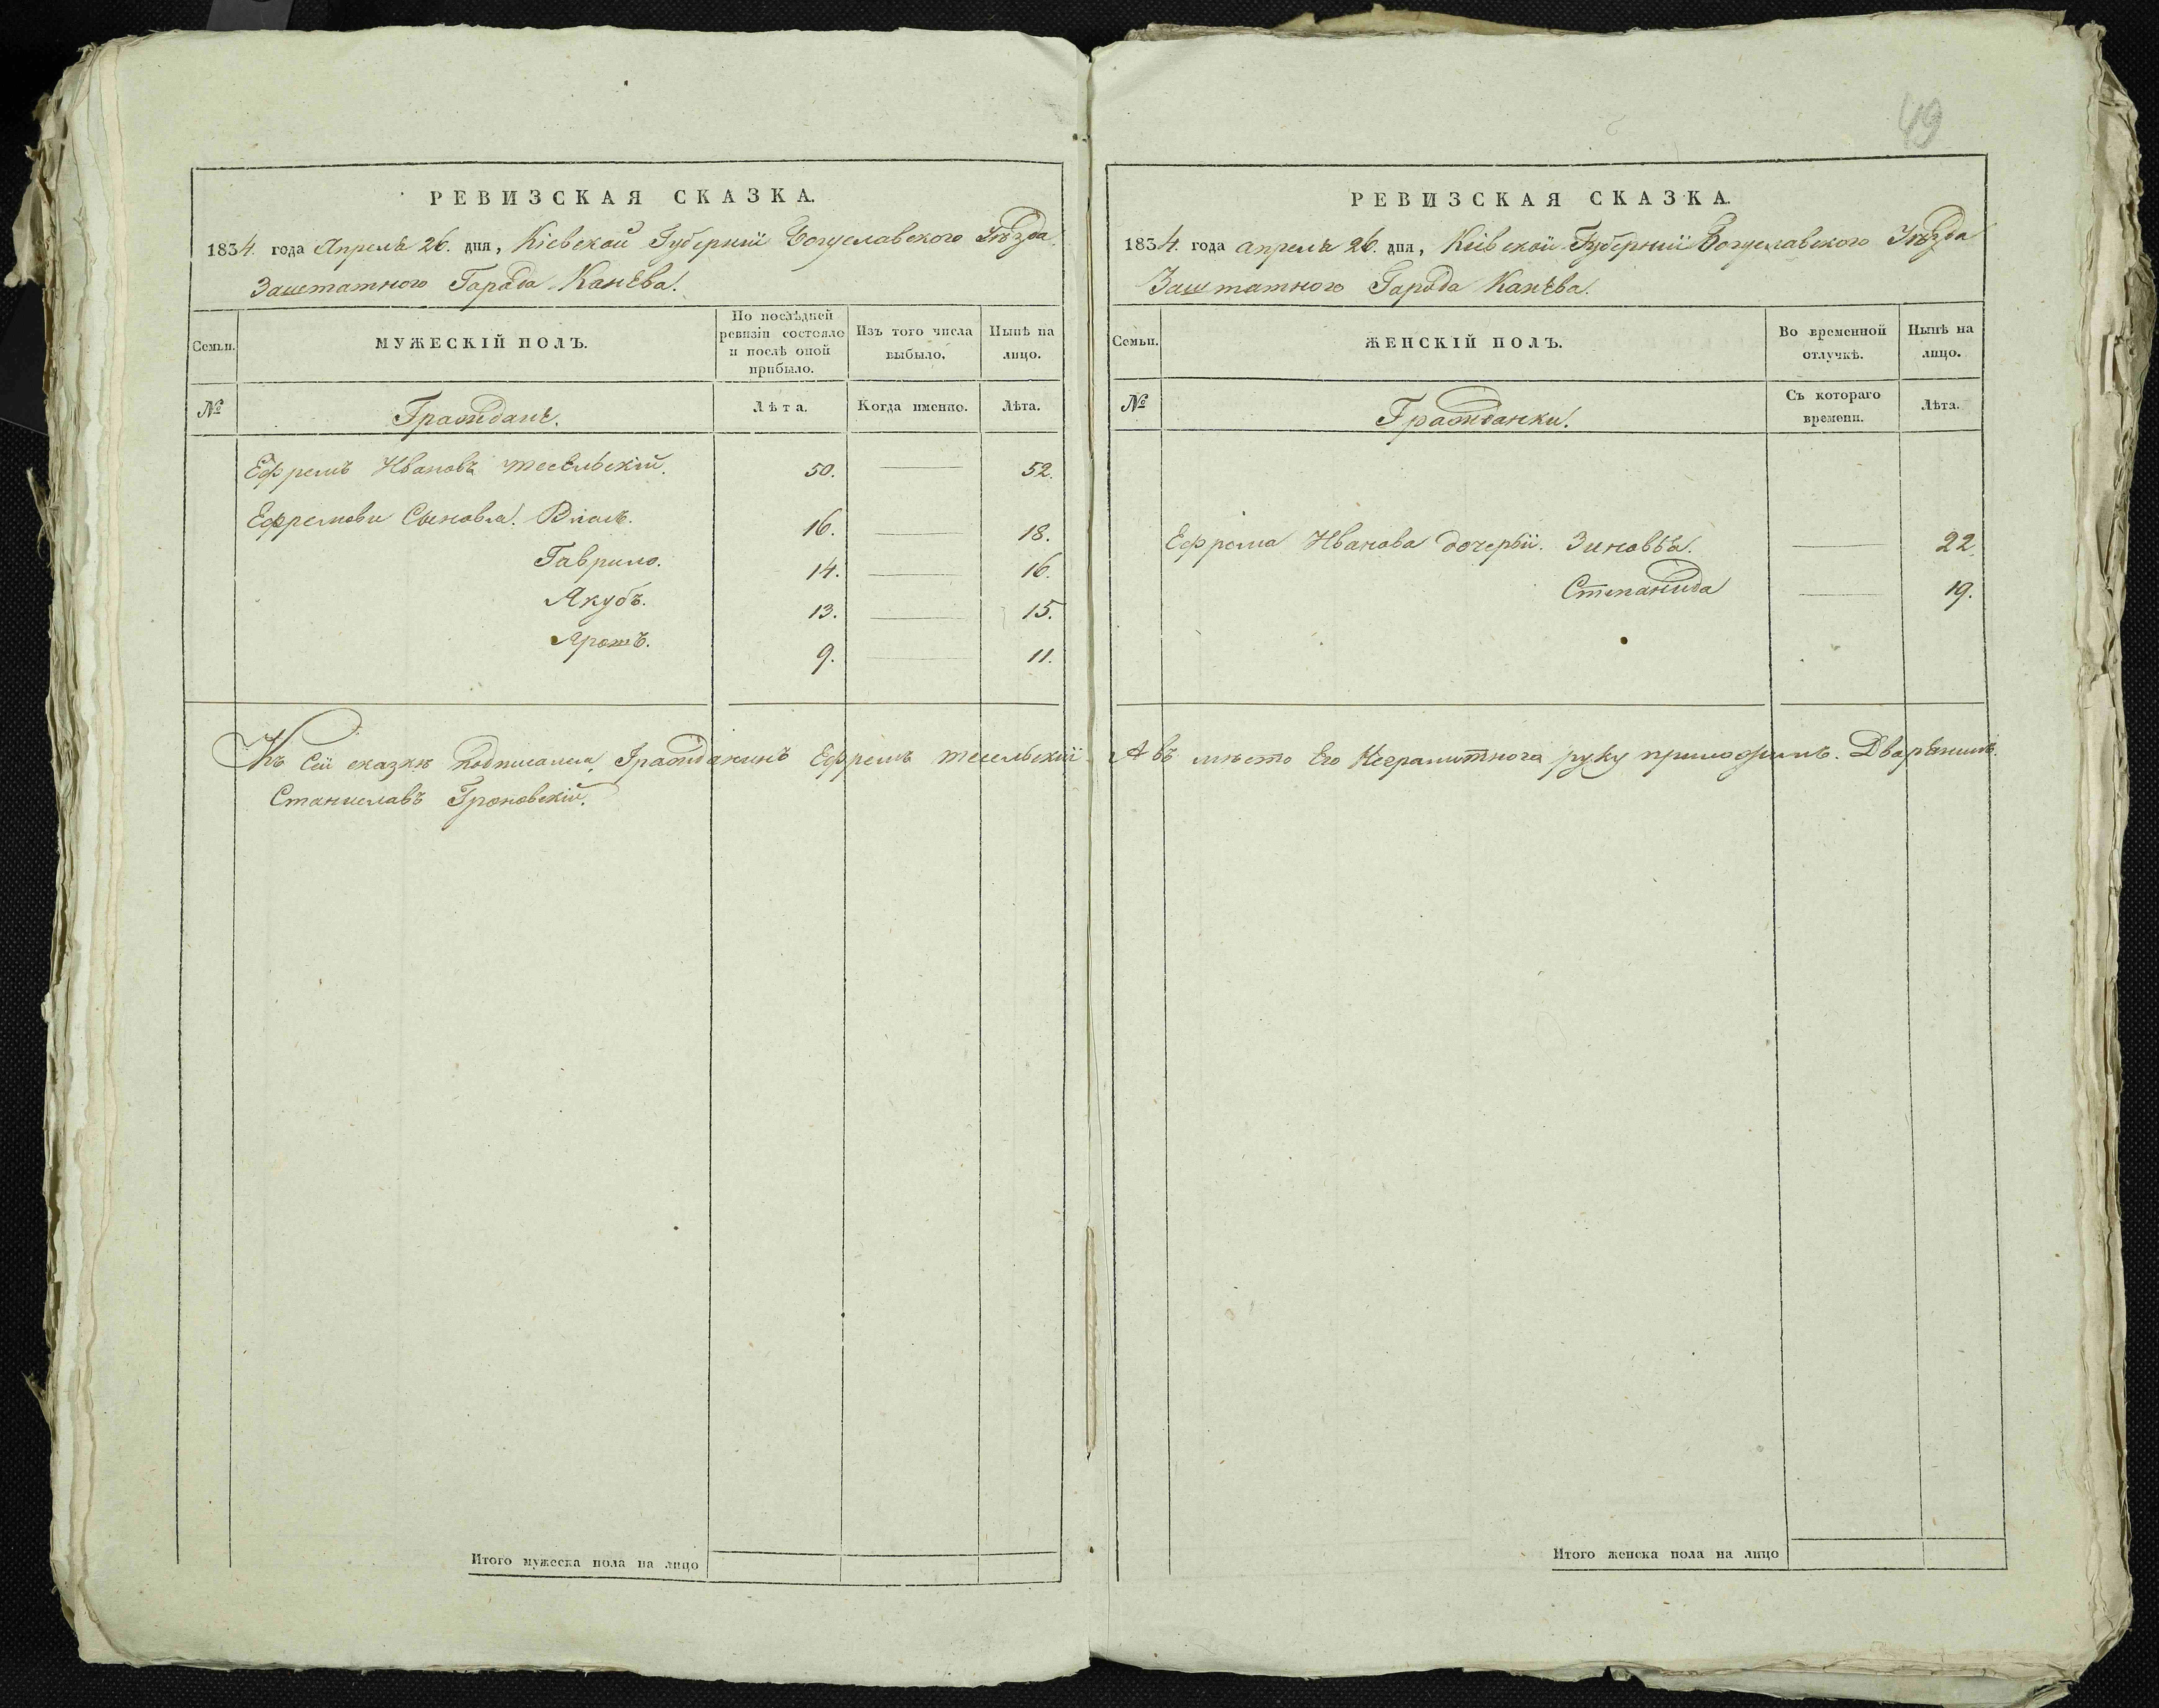 49
РЕВИЗСКАЯ СКАЗКА.
1834. года Апреля 26. дня, Кіевской Губерніи Богуславского Уѣзда
Заштатного Города Канева.
Семьи.
МУЖЕСКІЙ ПОЛЪ.
По послѣдней ревизіи состояло и послѣ оной прибыло.
Изъ того числа выбыло.
Нынѣ на лицо.
№
Граждане.
Лѣта.
Когда именно.
Лѣта.
Ефремъ Ивановъ 50. 52.
Ефремови Сыновья. 16. 18.
Гаврило. 14. 16.
Якубъ. 13. 15.
9. 11.
Къ Сей сказки подписался Гражданинъ Ефремъ
Станиславъ Гроновскій.
Итого мужеска пола на лицо
РЕВИЗСКАЯ СКАЗКА.
1834. года апреля 26. дня, Кіевской Губерніи Богуславского Уѣзда
Заштатного Города Канева.
Семьи.
ЖЕНСКІЙ ПОЛЪ.
Во временной отлучкѣ.
Нынѣ на лицо.
№
Гражданки.
Съ котораго времени.
Лѣта.
Ефрема Иванова дочерьи. Зиновья. 22.
Степанида 19.
А въ мѣсто Его Неграмитнога руку приложилъ. Дваренинъ.
Итого женска пола на лицо